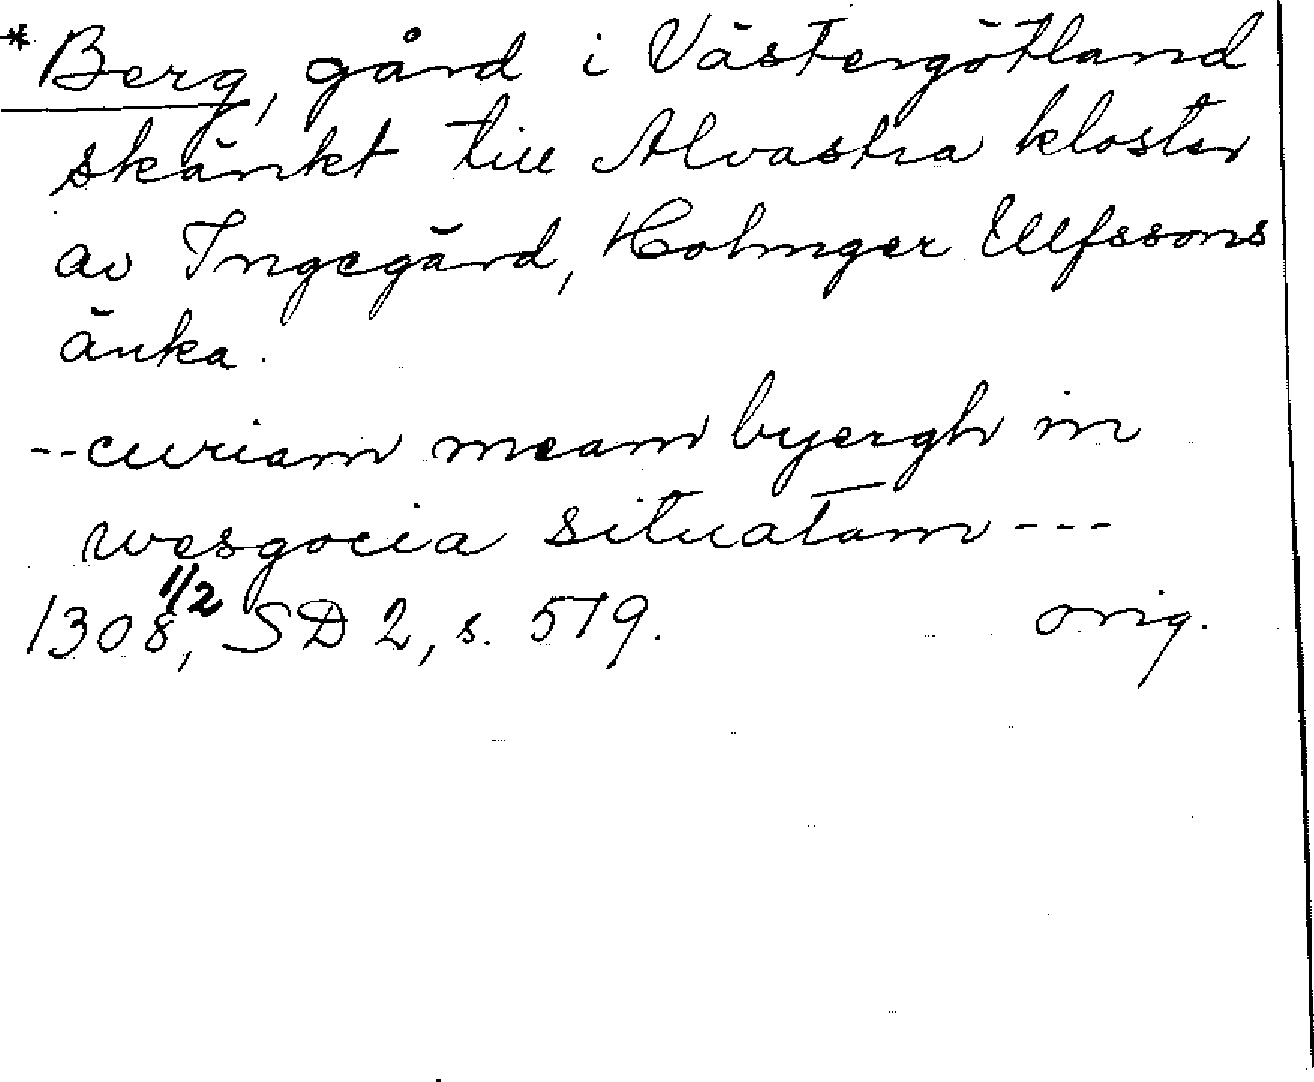 * Berg, gård i Västergötland
skänkt till Alvastra kloster
av Ingegärd, Holmger Ulfssons
änka.
-- curiam meam byergh in
wesgocia situatam ---
1308 1/2, SD 2, s. 519. orig.